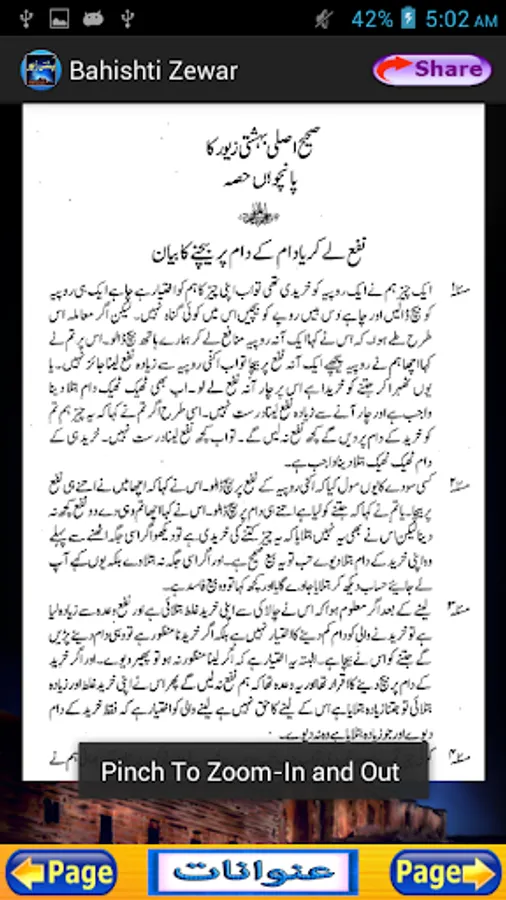 42% 5:02 AM
Bahishti Zewar
Share
صحیح اصلی بہشتی زیور کا
پانچواں حصہ
نفع لے کر یا دام کے دام پر بیچنے کا بیان
مسئلہ۱ ایک چیز ہم نے ایک روپیہ کو خریدی تھی تو اب اپنی چیز کا ہم کو اختیار ہے چاہے ایک ہی روپیہ
کو بیچ ڈالیں اور چاہے دس بیس روپے کو بیچیں اس میں کوئی گناہ نہیں۔ لیکن اگر معاملہ اس
طرح طے ہوا۔ کہ اس نے کہا ایک آنہ روپیہ منافع لے کر ہمارے ہاتھ بیچ ڈالو۔ اس پر تم نے
کہا اچھا ہم نے روپیہ پیچھے ایک آنہ نفع پر بیچا تو اب اکنی روپیہ سے زیادہ نفع لینا جائز نہیں۔ یا
یوں ٹھہرا کر جتنے کو خریدا ہے اس پر چار آنہ نفع لے لو۔ اب بھی ٹھیک ٹھیک دام بتلا دینا
واجب ہے اور چار آنے سے زیادہ نفع لینا درست نہیں۔ اسی طرح اگر تم نے کہا کہ یہ چیز ہم تم
کو خرید کے دام پر دیں گے کچھ نفع نہ لیں گے۔ تو اب کچھ نفع لینا درست نہیں۔ خرید ہی کے
دام ٹھیک ٹھیک بتلا دینا واجب ہے۔
مسئلہ۲ کسی سودے کا یوں مول کیا کہ اکنی روپیہ کے نفع پر بیچ ڈالو۔ اس نے کہا کہ اچھا میں نے اتنے ہی نفع
پر بیچا۔ یا تم نے کہا کہ جتنے کو لیا ہے اتنے ہی دام پر بیچ ڈالو۔ اس نے کہا اچھا تم وہی دے دو نفع کچھ نہ
دینا لیکن اس نے ابھی یہ نہیں بتلایا کہ یہ چیز کتنے کی خریدی ہے تو دیکھو اگر اسی جگہ اٹھنے سے پہلے
وہ اپنی خرید کے دام بتلا دیوے تب تو یہ بیع صحیح ہے۔ اور اگر اسی جگہ نہ بتلا دے بلکہ یوں کہے آپ
لے جائیے حساب دیکھ کر بتلایا جاوے گا یا اور کچھ کہا تو وہ بیع فاسد ہے۔
مسئلہ۳ لینے کے بعد اگر معلوم ہوا کہ اس نے چالاکی سے اپنی خرید غلط بتلائی ہے اور نفع وعدہ سے زیادہ لیا
ہے تو خریدنے والی کو دام کم دینے کا اختیار نہیں ہے بلکہ اگر خریدنا منظور ہے تو وہی دام دینے پڑیں
گے جتنے کو اس نے بیچا ہے۔ البتہ یہ اختیار ہے کہ اگر لینا منظور نہ ہو تو پھیر دیوے۔ اور اگر خرید
کے دام پر بیچ دینے کا اقرار تھا اور یہ وعدہ تھا کہ ہم نفع نہ لیں گے پھر اس نے اپنی خرید غلط اور زیادہ
بتلائی تو جتنا زیادہ بتلایا ہے اس کے لینے کا حق نہیں ہے لینے والی کو اختیار ہے کہ فقط خرید کے دام
دیوے اور جو زیادہ بتلایا ہے وہ نہ دیوے۔
مسئلہ۴
ہم نے
Pinch To Zoom-In and Out
Page
عنوانات
Page